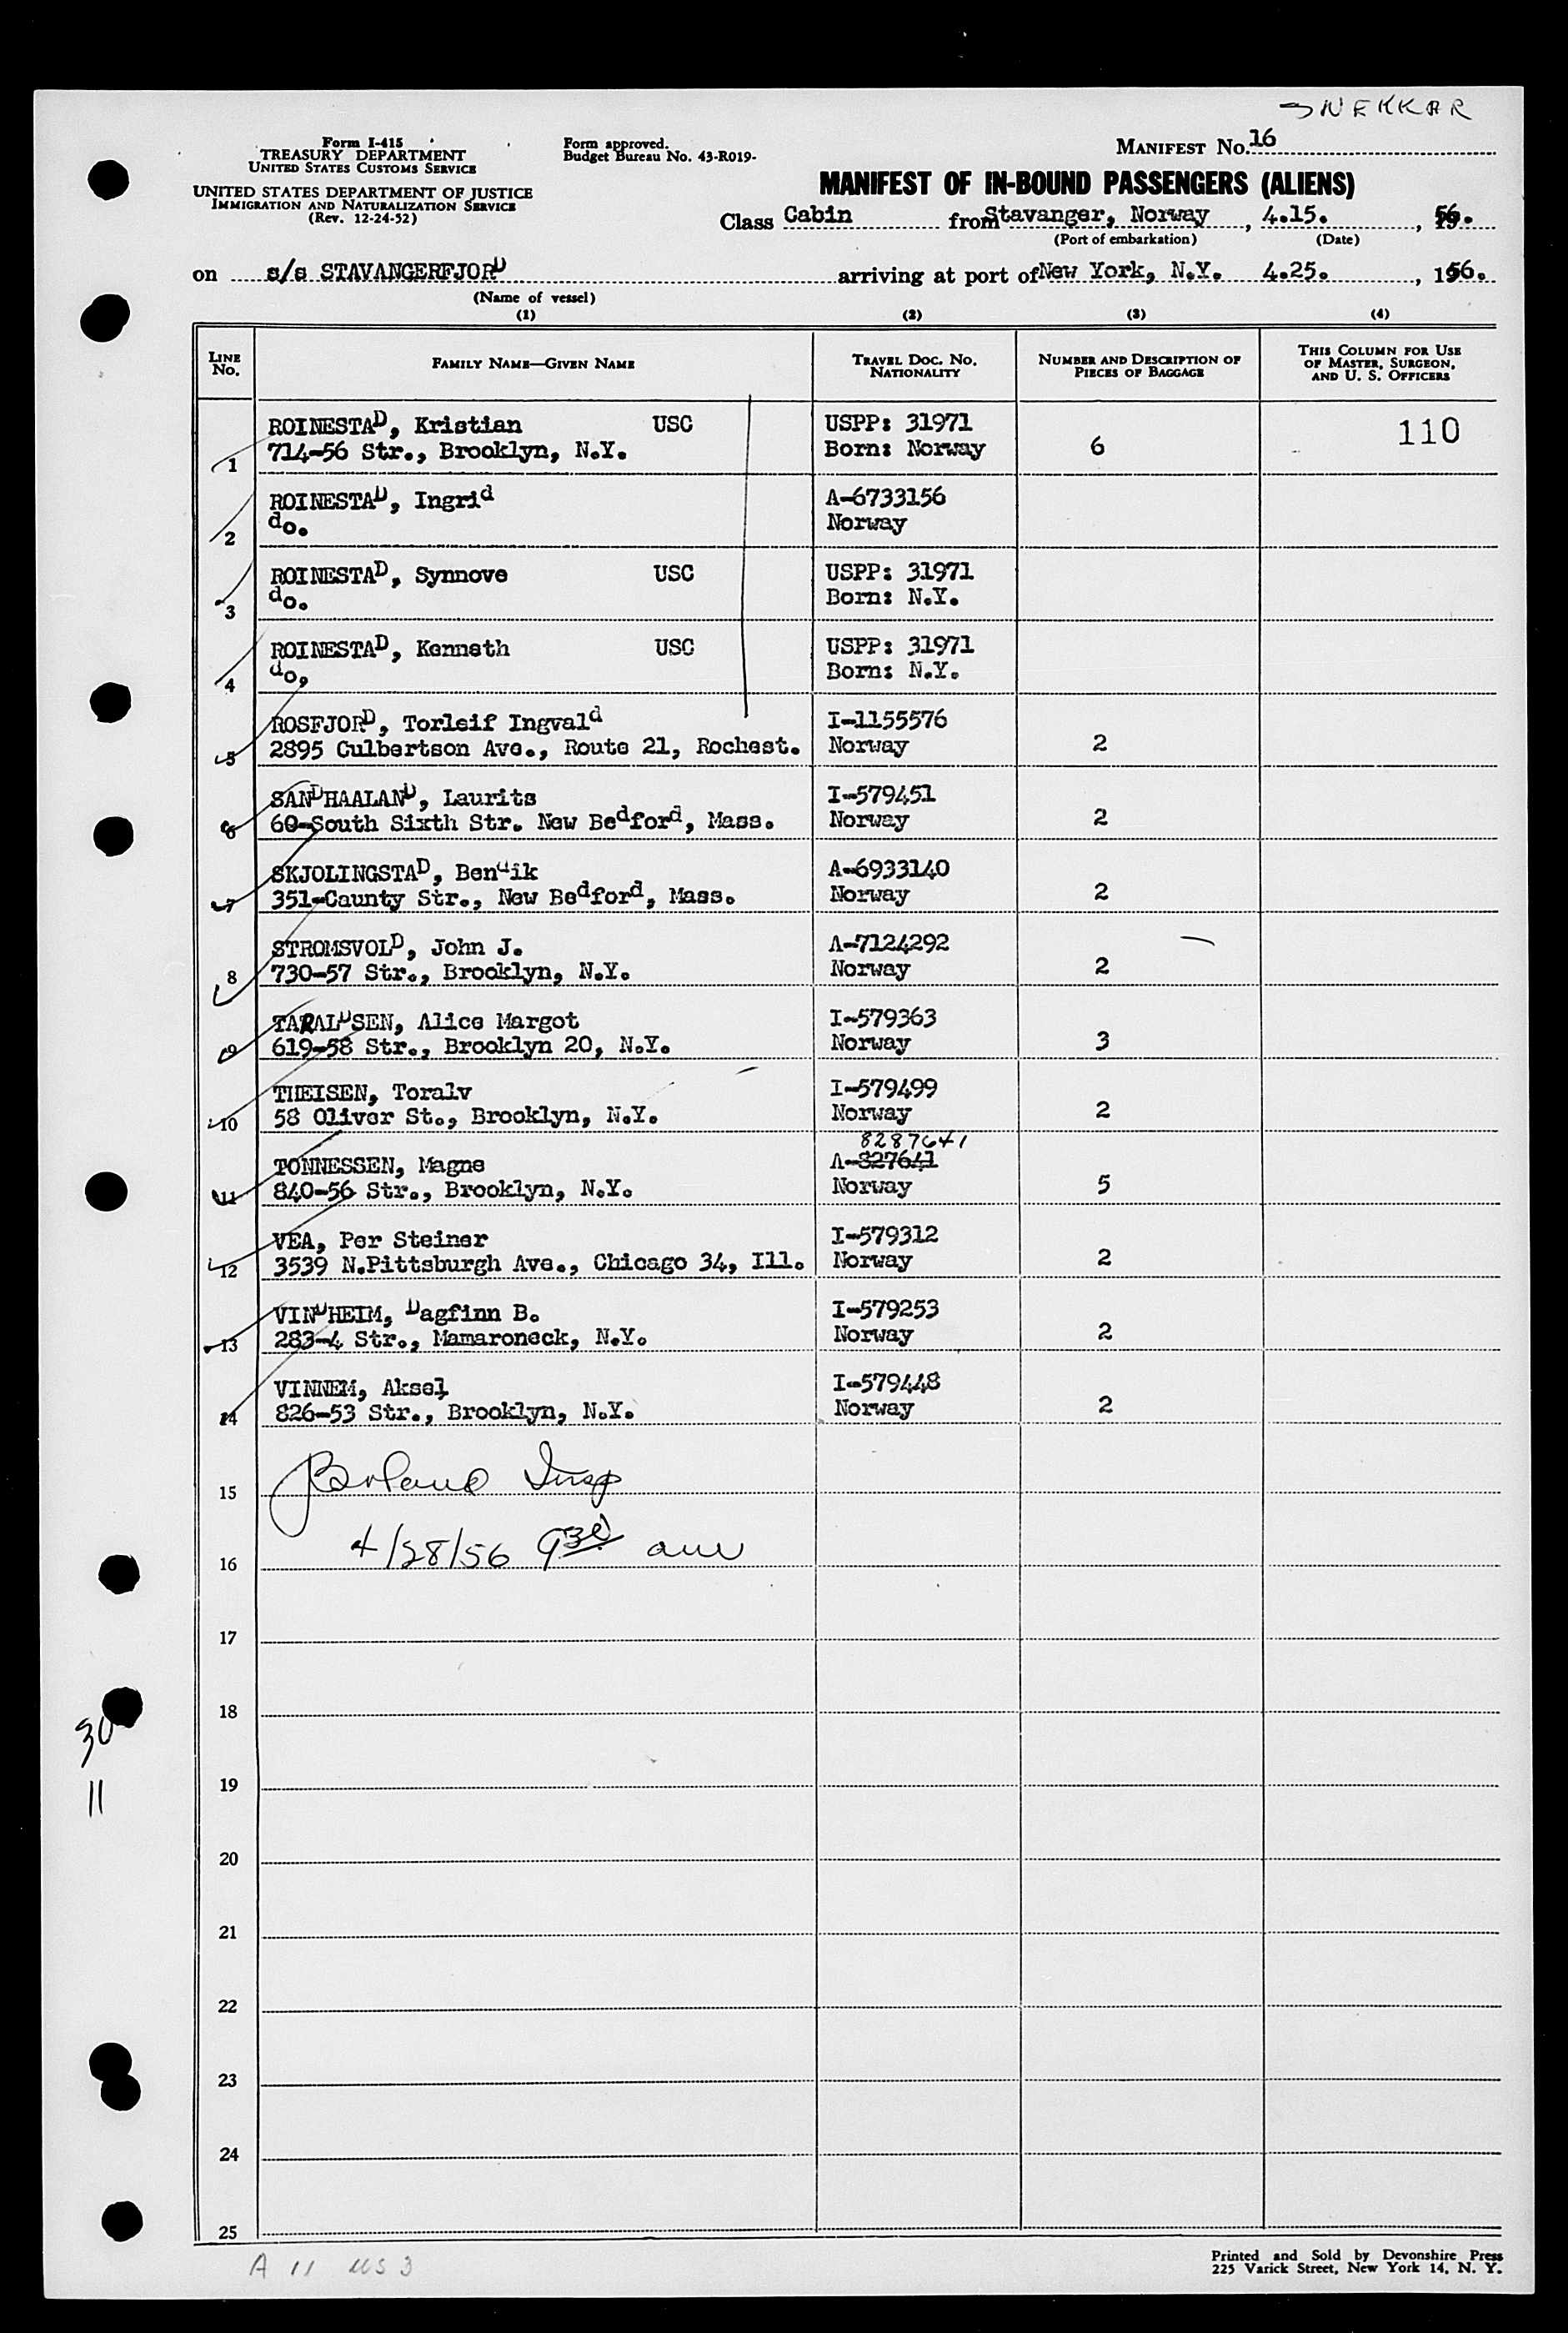 SNEKKAR
Form I-415
TREASURY DEPARTMENT
UNITED STATES CUSTOMS SERVICE
UNITED STATES DEPARTMENT OF JUSTICE
IMMIGRATION AND NATURALIZATION SERVICE
(Rev. 12-24-52)
Form approved.
Budget Bureau No. 43-R019-
MANIFEST No. 16
MANIFEST OF IN-BOUND PASSENGERS (ALIENS)
Class Cabin from Stavanger, Norway, 4.15., 56.
(Port of embarkation) (Date)
on s/s STAVANGERFJORD arriving at port of New York, N.Y. 4.25., 1956.
(Name of vessel)
(1) (2) (3) (4)
LINE No. FAMILY NAME—GIVEN NAME TRAVEL DOC. NO. NATIONALITY NUMBER AND DESCRIPTION OF PIECES OF BAGGAGE THIS COLUMN FOR USE OF MASTER, SURGEON, AND U. S. OFFICERS
ROINESTAD, Kristian USC USPP: 31971 110
1 714-56 Str., Brooklyn, N.Y. Born: Norway 6
ROINESTAD, Ingrid A-6733156
2 do. Norway
ROINESTAD, Synnove USC USPP: 31971
3 do. Born: N.Y.
ROINESTAD, Kenneth USC USPP: 31971
4 do, Born: N.Y.
ROSFJORD, Torleif Ingvald I-1155576
5 2895 Culbertson Ave., Route 21, Rochest. Norway 2
SANDHAALAND, Laurits I-579451
6 60-South Sixth Str. New Bedford, Mass. Norway 2
SKJOLINGSTAD, Bendik A-6933140
7 351-Caunty Str., New Bedford, Mass. Norway 2
STROMSVOLD, John J. A-7124292
8 730-57 Str., Brooklyn, N.Y. Norway 2
TARALDSEN, Alice Margot I-579363
9 619-58 Str., Brooklyn 20, N.Y. Norway 3
THEISEN, Toralv I-579499
10 58 Oliver St., Brooklyn, N.Y. Norway 2
8287641
TONNESSEN, Magne A-827641
11 840-56 Str., Brooklyn, N.Y. Norway 5
VEA, Per Steiner I-579312
12 3539 N.Pittsburgh Ave., Chicago 34, Ill. Norway 2
VINDHEIM, Dagfinn B. I-579253
13 283-4 Str., Mamaroneck, N.Y. Norway 2
VINNEM, Aksel I-579448
14 826-53 Str., Brooklyn, N.Y. Norway 2
15 Insp
16 4/28/56 930 am
17
18
30
19
11
20
21
22
23
24
25
A 11 US 3
Printed and Sold by Devonshire Press
225 Varick Street, New York 14, N. Y.